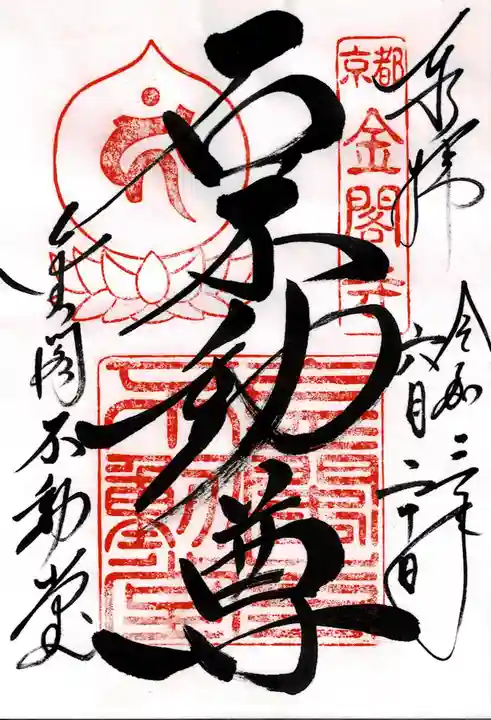 奉拝
京都
金閣寺
令和二年
六月二十日
石不動尊
金閣不動堂